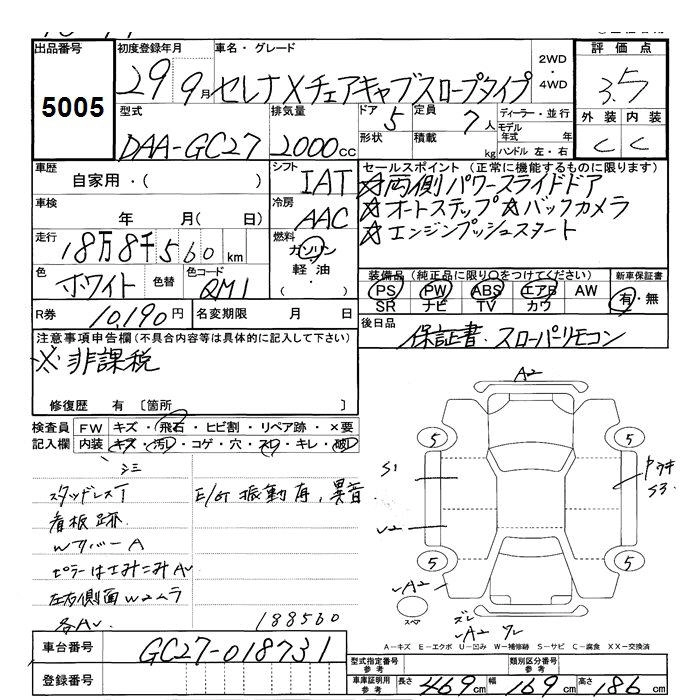 出品番号
5005
初度登録年月
29 9月
車名・グレード
セレナ Xチェアキャブスロープタイプ
2WD
・
4WD
評価点
3.5
外装 内装
C C
型式
DAA-GC27
排気量
2000cc
ドア
5
形状
定員
7人
積載 kg
ディーラー・並行
モデル年式 年
ハンドル 左・右
車歴
自家用・( )
シフト
IAT
セールスポイント(正常に機能するものに限ります)
☆両側パワースライドドア
☆オートステップ ☆バックカメラ
☆エンジンプッシュスタート
車検
年 月( 日)
冷房
AAC
走行
18万8千560km
燃料
ガソリン
軽油
( ・ )
色
ホワイト
色替
色コード
QM1
装備品(純正品に限り○をつけてください)
PS PW ABS エアB AW
SR ナビ TV カワ
新車保証書
有・無
R券
10,190円
名変期限 月 日
後日品
保証書・スローパーリモコン
注意事項申告欄(不具合内容等は具体的に記入して下さい)
※非課税
修復歴 有 〔箇所 〕
検査員
記入欄
FW キズ・飛石・ヒビ割・リペア跡・×要
内装 キズ・汚・コゲ・穴・スレ・キレ・破
シミ
スタッドレスT
看板跡
Wカバー A
E/G 振動有、異音
左右側面W2ムラ
188560
A2
5 5
S1
S3
5 5
A2
スペア
A2
A-キズ E-エクボ U-凹み W-補修跡 S-サビ C-腐食 XX-交換済
車台番号
GC27-018731
登録番号
型式指定番号
参考
類別区分番号
参考
車庫証明用
参考
長さ 469cm 幅 169cm 高さ 186cm